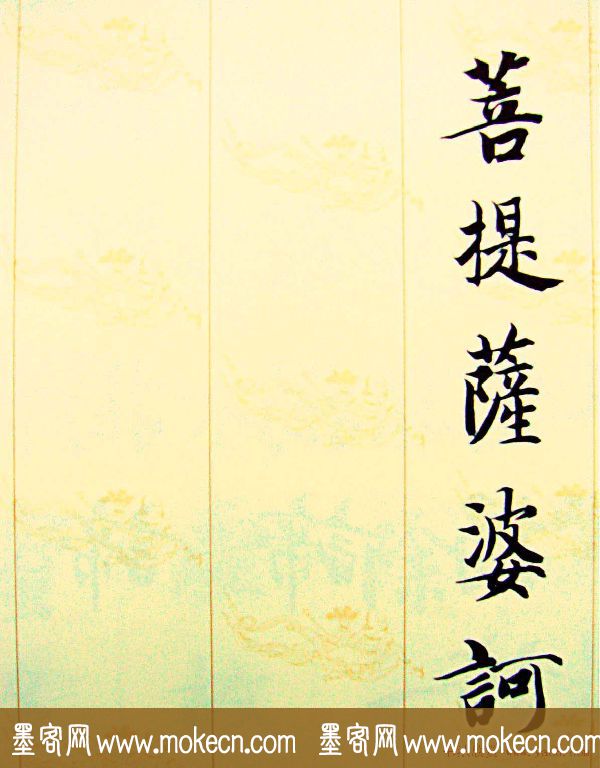 菩提薩婆訶
墨客网 www.mokecn.com 墨客网 www.mokecn.com